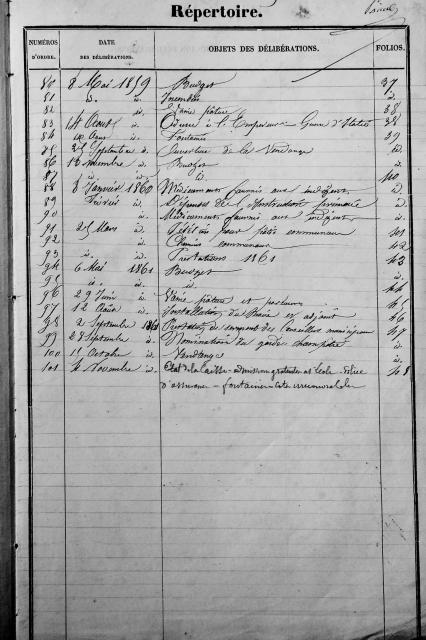 Répertoire.
NUMÉROS D'ORDRE. DATE DES DÉLIBÉRATIONS. OBJETS DES DÉLIBÉRATIONS. FOLIOS.
80 8 Mai 1859 Budget 37
81 id. id. id.
82 id. Vaine pâture 38
83 14 Aout id. à l'Empereur Guerre d'Italie 38
84 id. Aout id. Fontaines 39
85 25 Septembre id. Ouverture de la Vendange id.
86 13 id. Budget id.
87 id. id. id. 40
88 8 Janvier 1860 Médicaments fournis aux indigents id.
89 Février id. Dépenses de l'Instruction primaire id.
90 id. Médicaments fournis aux indigents id.
91 25 Mars id. communaux 41
92 id. Chemins communaux 42
93 id. id. Prestations 1861 43
94 6 Mai 1861 Budget id.
95 id. id. id. 44
96 29 Juin id. Vaine pâture et parcours 45
97 12 Août id. Installation du Maire et adjoint 46
98 2 Septembre 1860 de serment des Conseillers municipaux 47
99 23 Septembre id. Nomination du garde champêtre id.
100 1er Octobre id. Vendange id.
101 4 Novembre id. Etat de la Caisse - admission gratuite à l'école - Police 48
fontaines